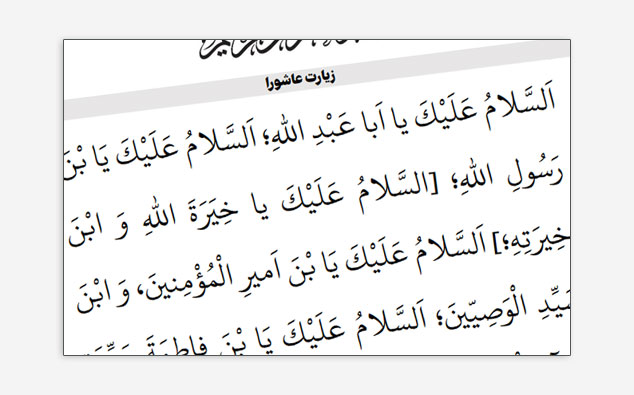 زیارت عاشورا
اَلسَّلامُ عَلَیْكَ یا اَبا عَبْدِ اللهِ؛ اَلسَّلامُ عَلَیْكَ یَا بْنَ
رَسُولِ اللهِ؛ [السَّلامُ عَلَیْكَ یا خِیَرَةَ اللهِ وَ ابْنَ
خِیرَتِهِ؛] اَلسَّلامُ عَلَیْكَ یَا بْنَ اَمیرِ الْمُؤْمِنینَ، وَ ابْنَ
سَیِّدِ الْوَصِیّینَ؛ اَلسَّلامُ عَلَیْكَ یَا بْنَ فاطِمَةَ